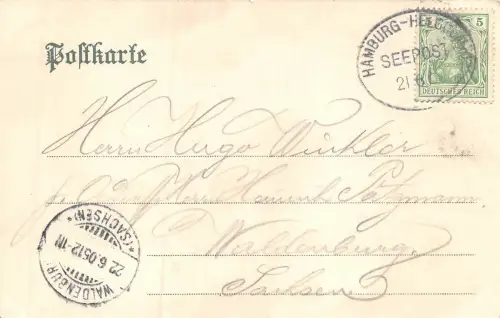 Postkarte
HAMBURG-HELGOLAND
SEEPOST
21.6
5
DEUTSCHES REICH
Herrn Hugo Winkler
p. Ad. Herrn Heinrich
Waldenburg
Sachsen
WALDENBURG
*(SACHSEN)*
22.6.05.12-1N